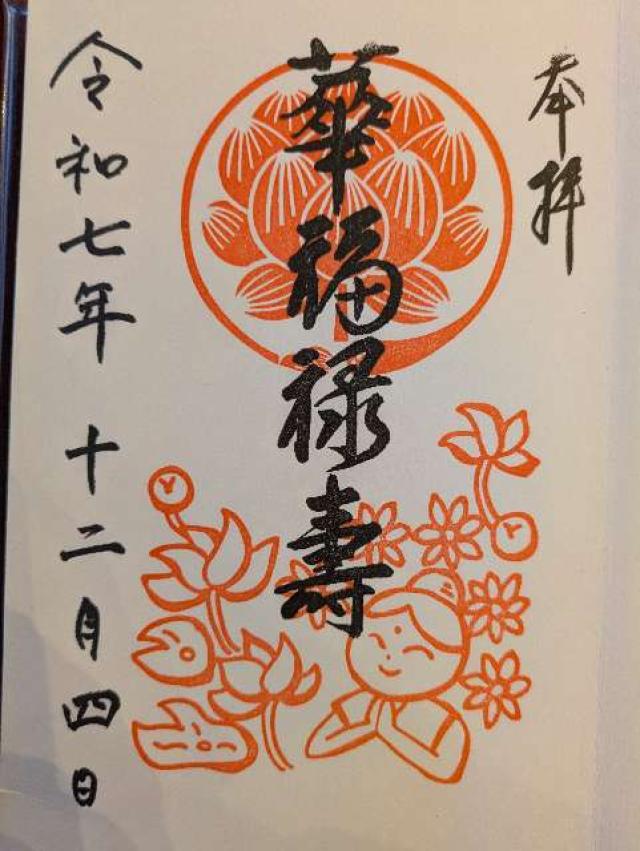 奉拝
華福禄寿
令和七年 十二月四日